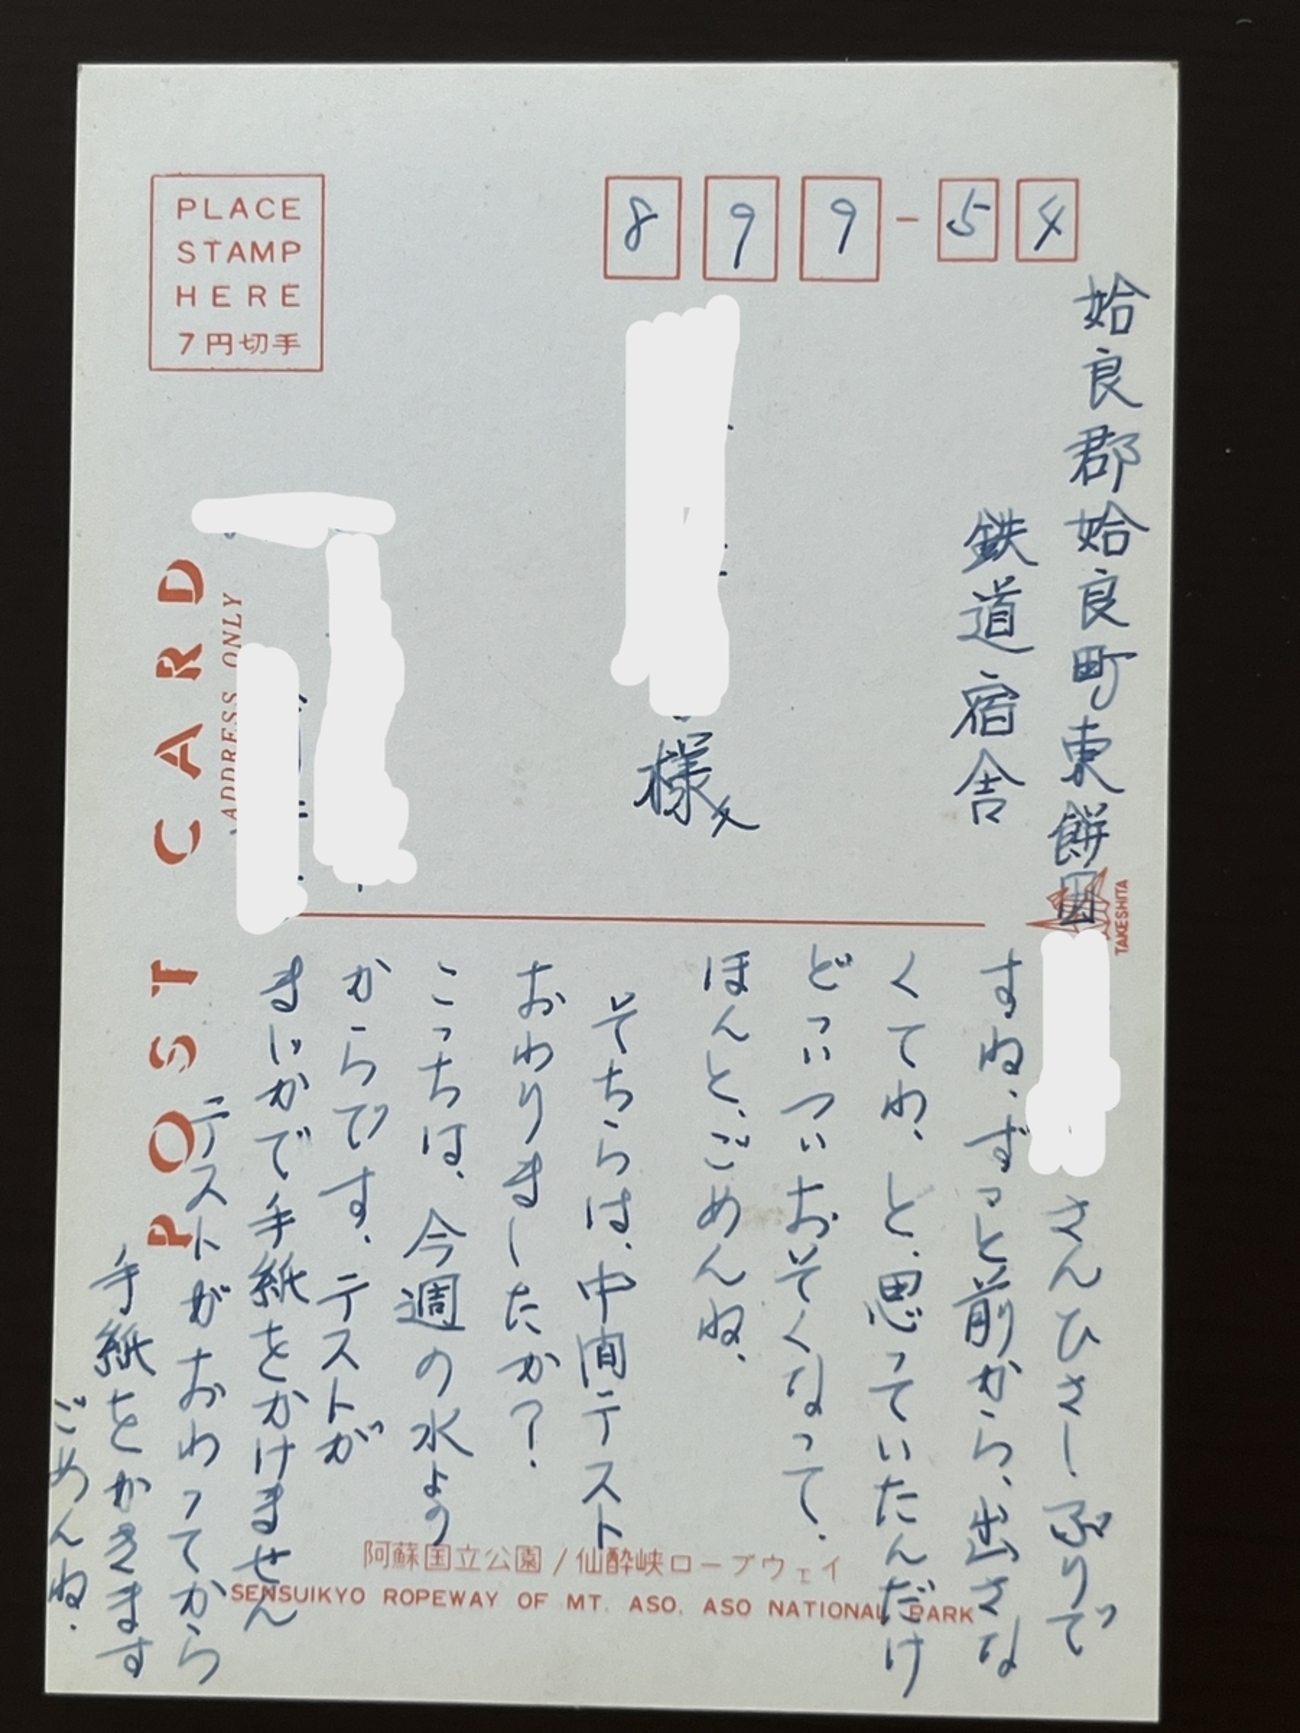 PLACE
STAMP
HERE
7円切手
899-54
姶良郡姶良町東餅田
鉄道宿舎
様
POST CARD
ADDRESS ONLY
TAKESHITA
さんひさしぶりで
すね、ずっと前から、出さな
くてわ、と、思っていたんだけ
どついついおそくなって、
ほんと、ごめんね、
そちらは、中間テスト
おわりましたか?
こっちは、今週の水より
からです、テストが
まじかで手紙をかけません
テストがおわってから
手紙をとかきます
ごめんね、
阿蘇国立公園/仙酔峡ロープウェイ
SENSUIKYO ROPEWAY OF MT. ASO, ASO NATIONAL PARK